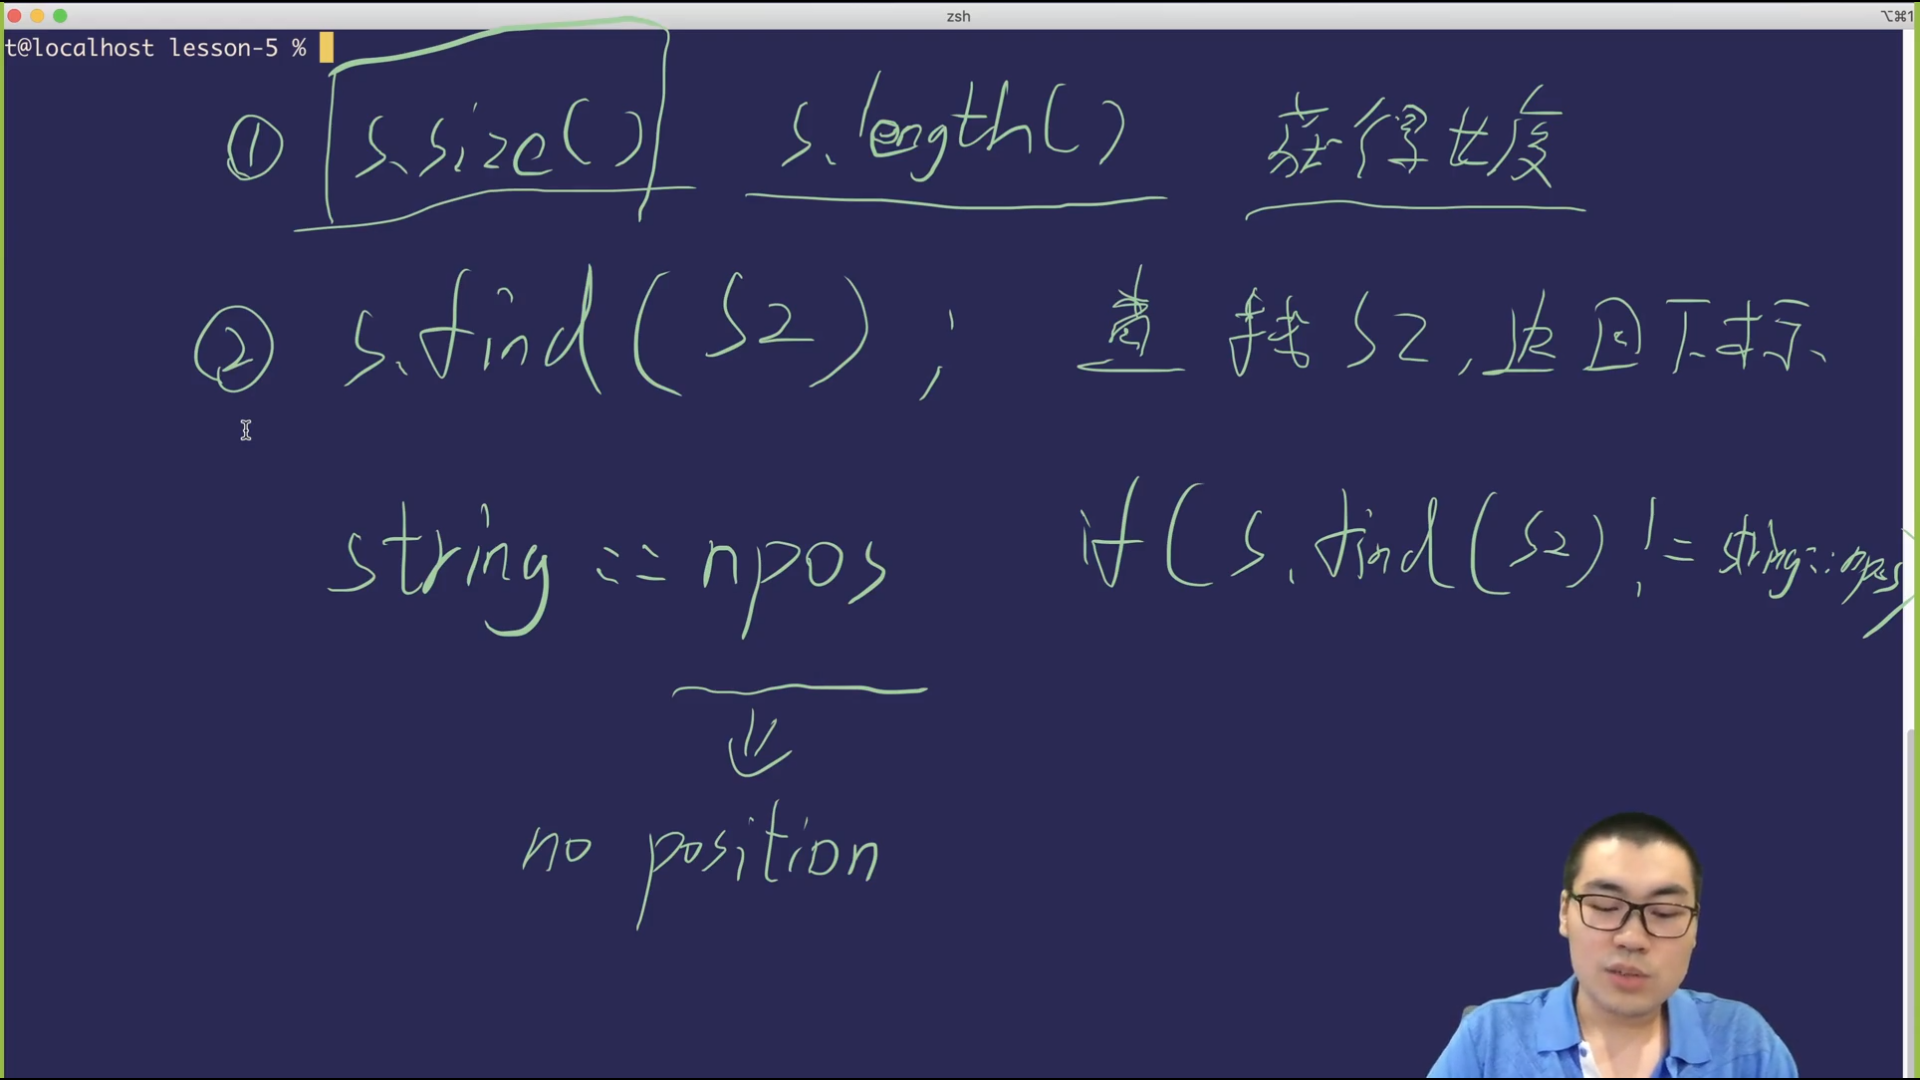 zsh
⌥⌘1
t@localhost lesson-5 %
① s.size() s.length() 获得长度
② s.find(s2); 查找s2,返回下标
string::npos if(s.find(s2) != string::npos)
no position